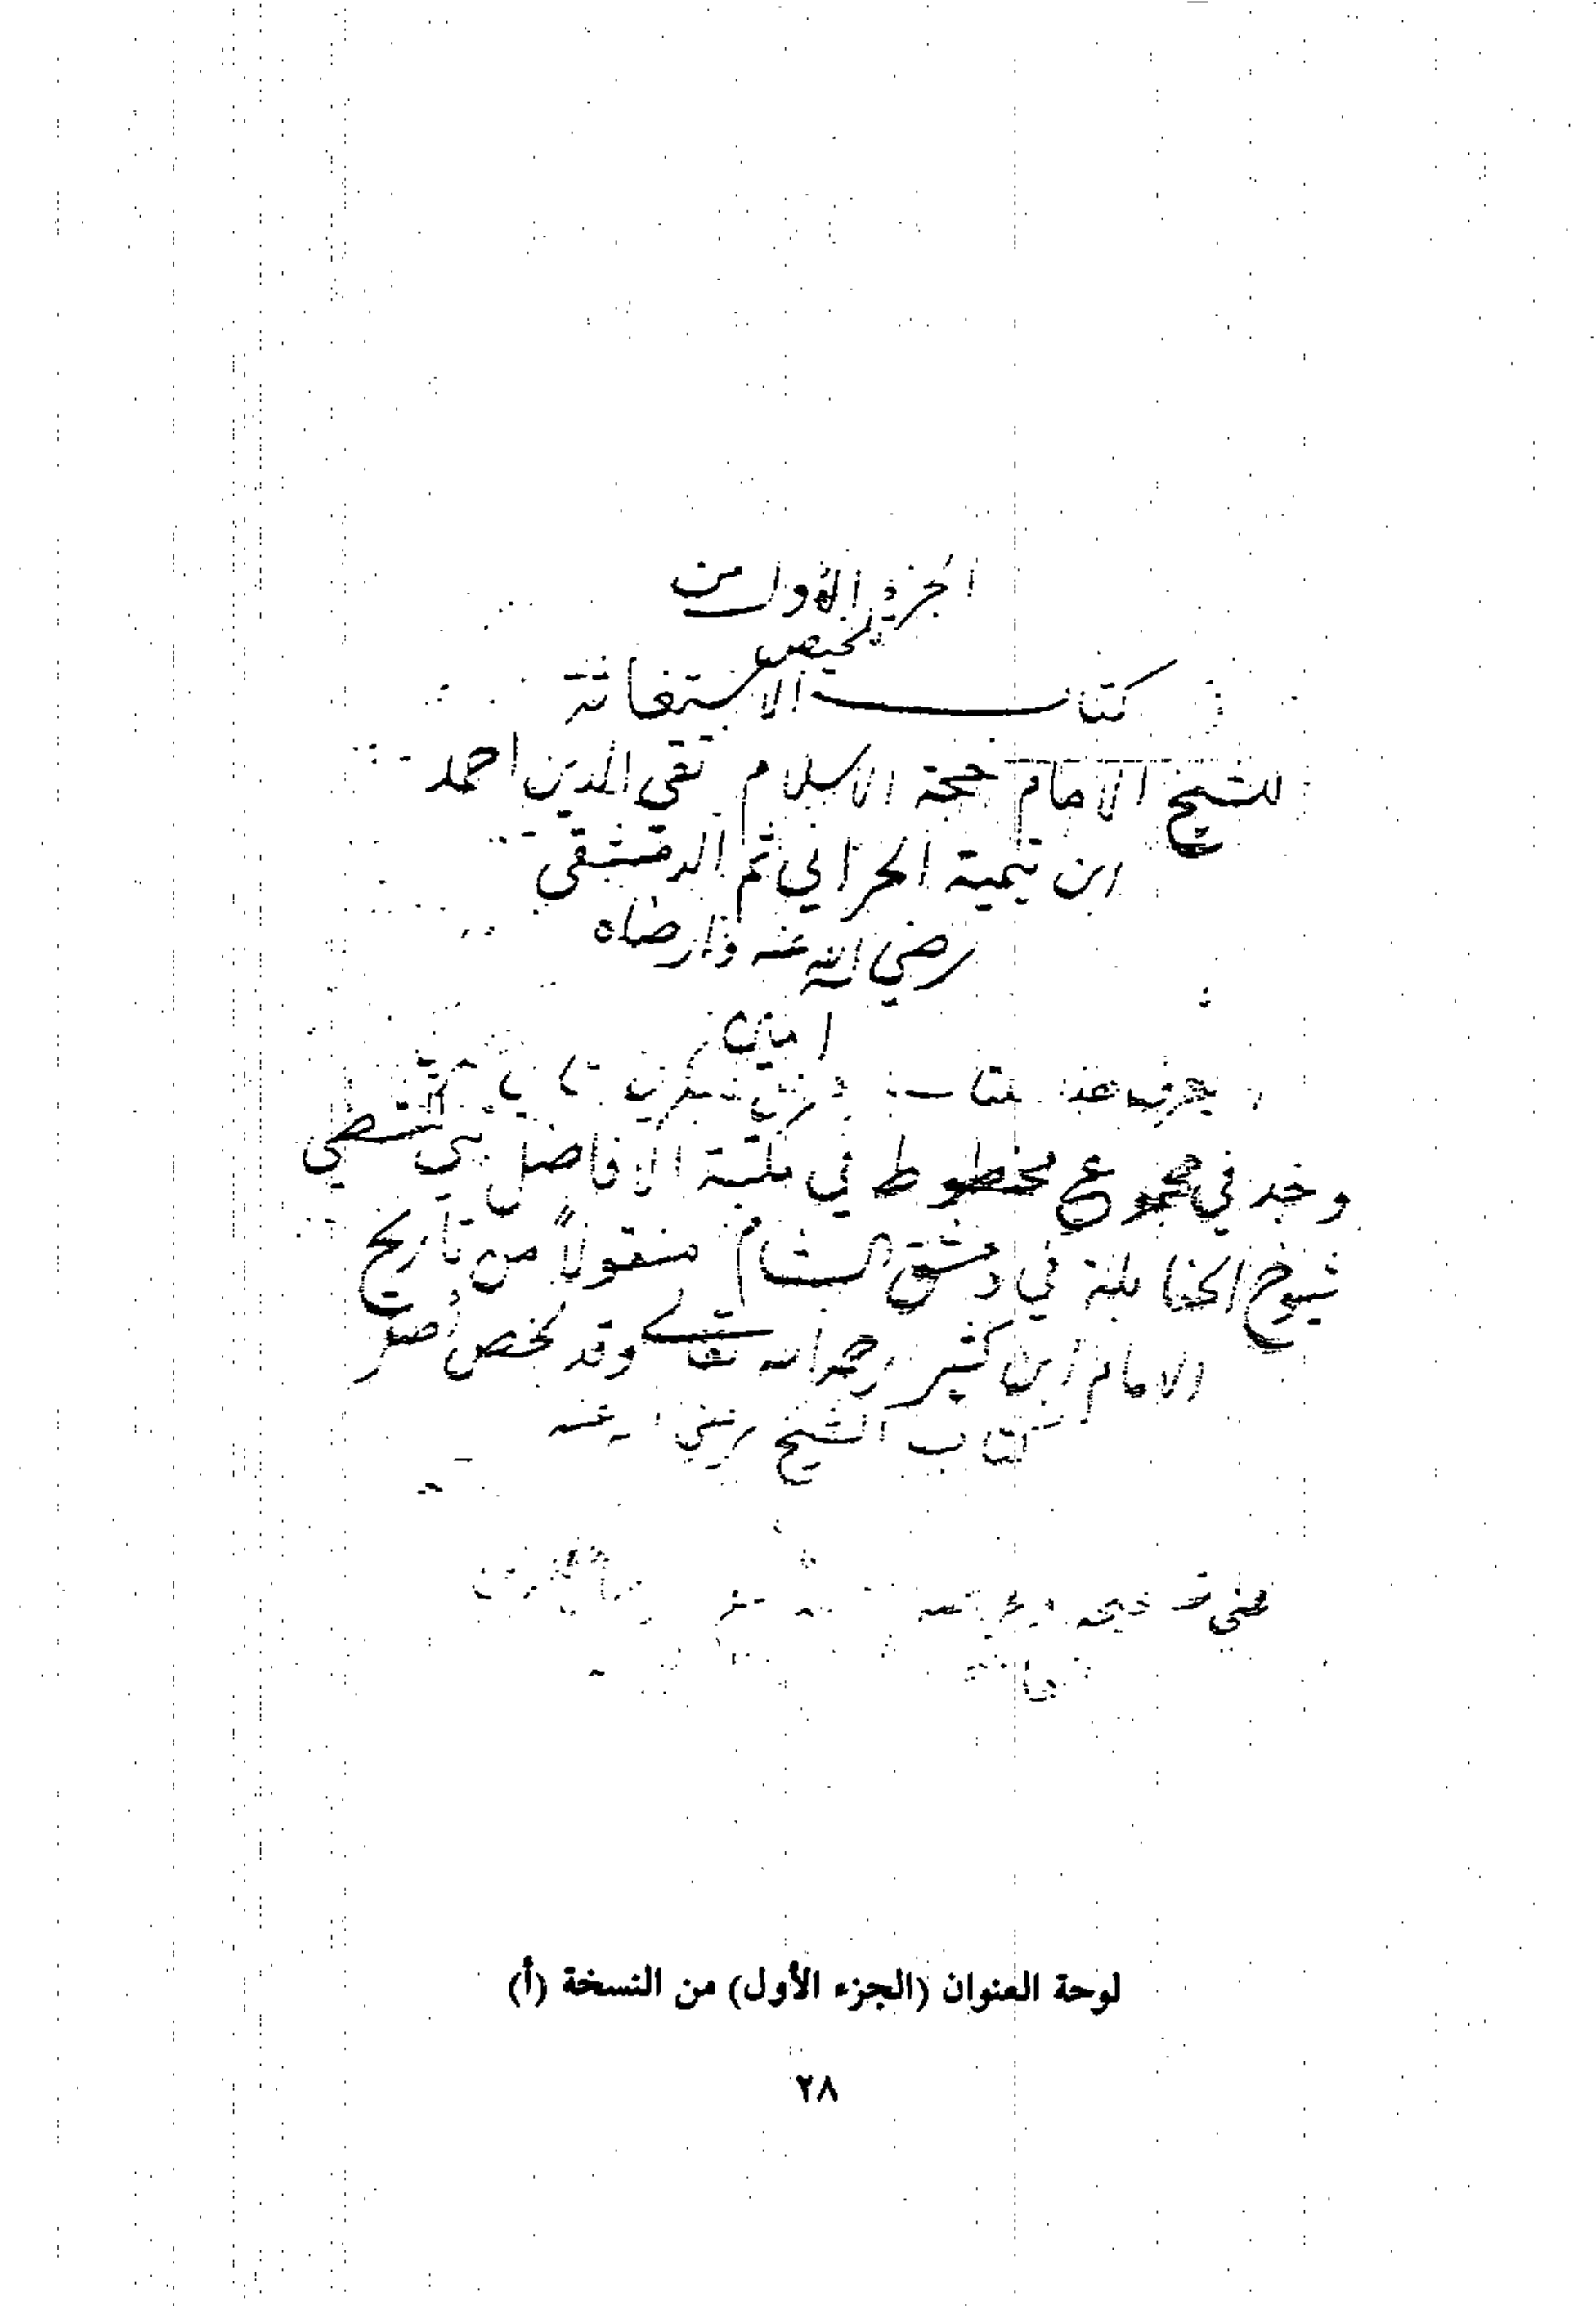 الجزء الأول من
تلخيص
كتاب الاستغاثة
للشيخ الامام حجة الاسلام تقي الدين احمد
ابن تيمية الحراني ثم الدمشقي
رضي الله عنه وارضاه
امين
يعرف هذا
وجد في مجموع مخطوط في مكتبة الافاضل بني الشطي
شيوخ الحنابلة في دمشق الشام منقولاً من تاريخ
الامام ابن كثير رحمه الله تعالى وقد لخص أصل
كتاب الشيخ رضي الله عنه
لوحة العنوان (الجزء الأول) من النسخة (أ)
٢٨